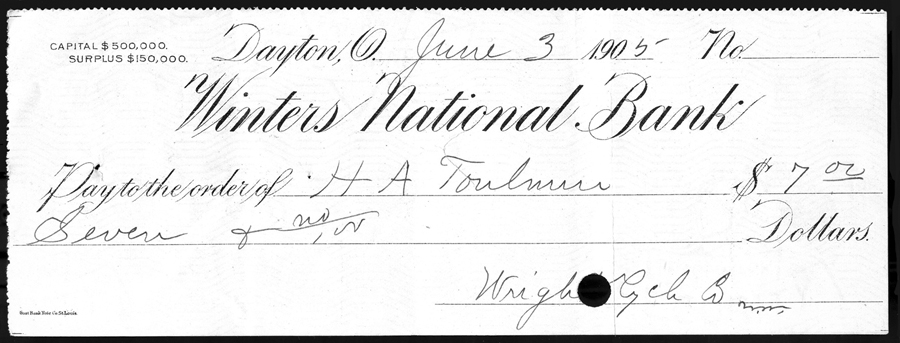 CAPITAL $500,000.
SURPLUS $150,000.
Dayton, O. June 3 1905 No.
Winters National Bank
Pay to the order of H A Toulmin $ 7 00
Seven & no/100 Dollars.
Wright Cycle Co
Bank Note Co. St. Louis.